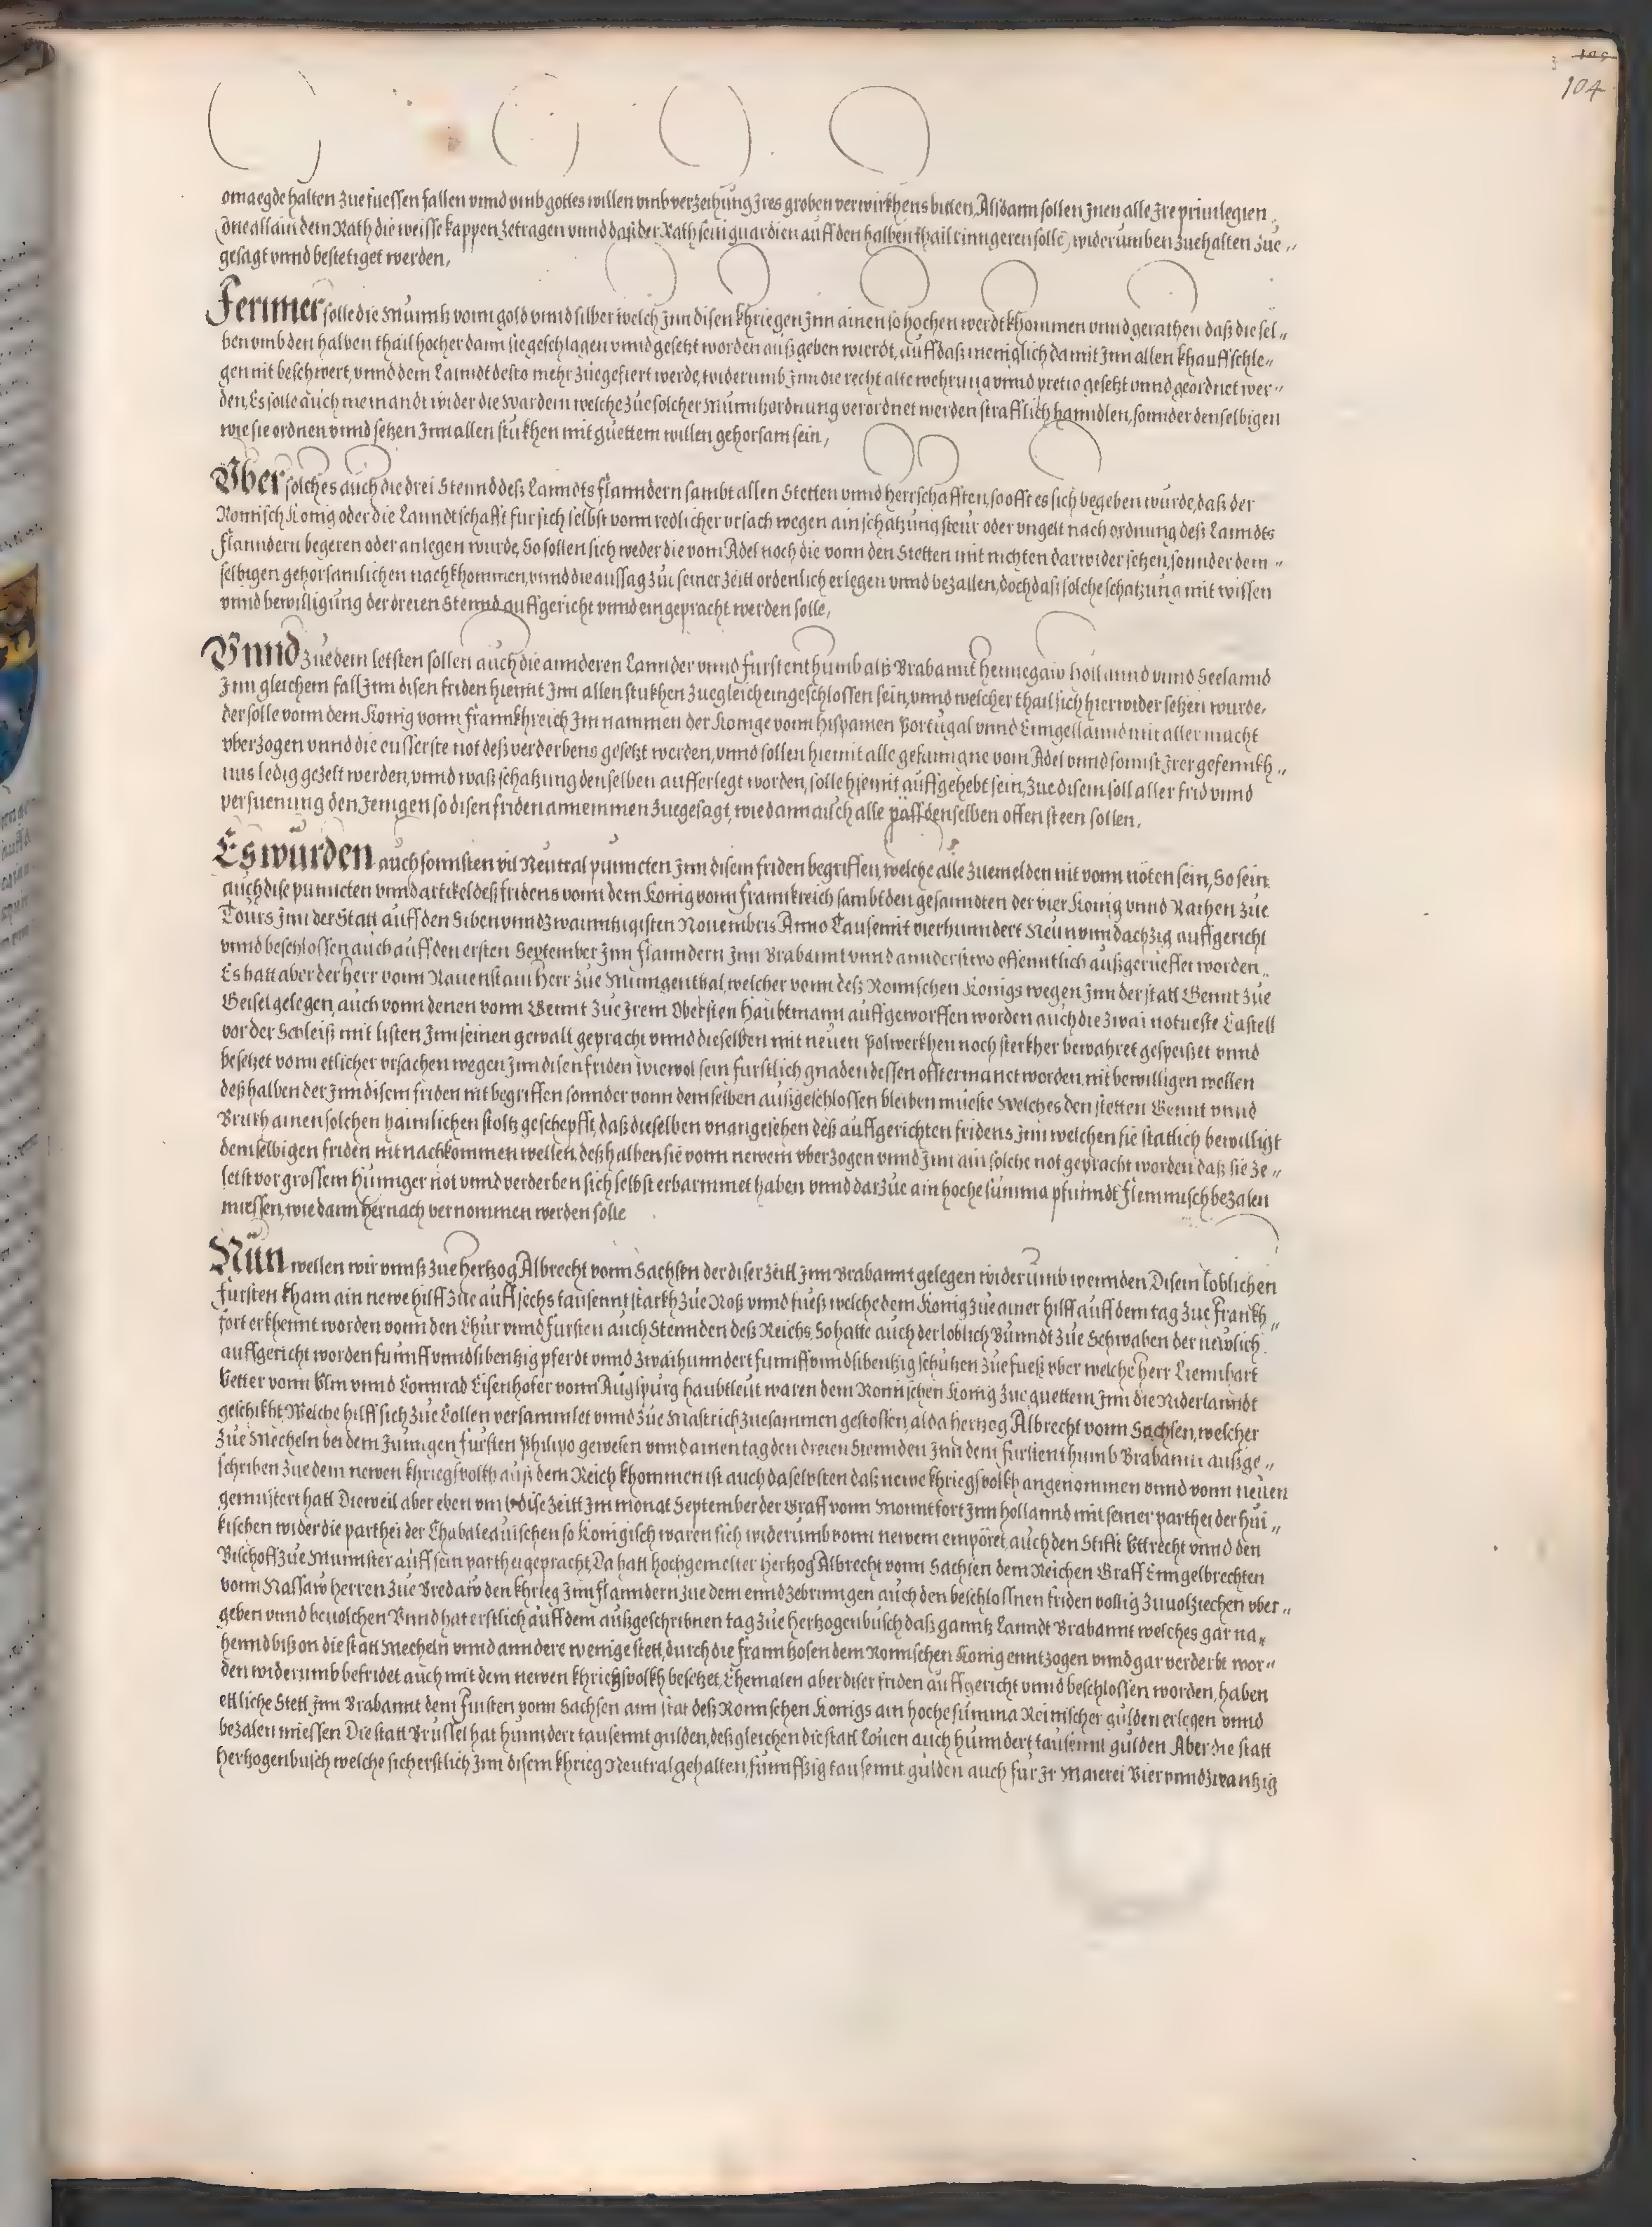 105
104
omaegde halten zue fuessen fallen vnnd vmb gottes willen vmb verzeihung Jres groben verwirkhens bitten, Alsdann sollen Jnen alle Jre priuilegien
one allain dem Rath die weisse kappen zetragen vnnd daß der Rath sein guardien auff den halben thail ringeren solle, widerumben zuehalten zue„
gesagt vnnd bestetiget werden,
Ferrner solle die Münntz vonn gold vnnd silber welch Jnn disen khriegen Jnn ainen so hochen werdt khommen vnnd gerathen daß die sel„
ben vmb den halben thail hocher dann sie geschlagen vnnd gesetzt worden außgeben wierdt, auff daß meniglich damit Jnn allen khauffschle„
gen nit beschwert, vnnd dem Lanndt desto mehr zuegefiert werde, widerumb Jnn die recht alte wehrung vnnd pretio gesetzt vnnd geordnet wer„
den, Es solle auch niemandt wider die Wardein welche zue solcher Münntzordnung verordnet werden strafflich hanndlen, sonnder denselbigen
wie sie ordnen vnnd setzen Jnn allen stukhen mit guettem willen gehorsam sein,
Vber solches auch die drei Stennd deß Lanndts Flanndern sambt allen Stetten vnnd herrschafften, so offt es sich begeben wurde, daß der
Romisch Konig oder die Lanndtschafft fur sich selbst vonn redlicher vrsach wegen ain schatzung steur oder vngelt nach ordnung deß Lanndts
Flanndern begeren oder anlegen wurde, So sollen sich weder die vom Adel noch die vonn den Stetten mit nichten darwider setzen, sonnder dem„
selbigen gehorsamlichen nachkhommen, vnnd die aussag zue seiner zeitt ordenlich erlegen vnnd bezallen, doch daß solche schatzung mit wissen
vnnd bewilligung der dreien Stennd auffgericht vnnd eingepracht werden solle,
Vnnd zue dem letsten sollen auch die annderen Lannder vnnd furstenthumb alß Brabannt Hennegaw Hollannd vnnd Seelannd
Jnn gleichem fall Jnn disen friden hiemit Jnn allen stukhen zuegleich eingeschlossen sein, vnnd welcher thail sich hierwider setzen wurde,
der solle vonn dem Konig vonn Frannkhreich Jm nammen der Konige vonn Hispanien Portugal vnnd Enngellannd mit aller macht
vberzogen vnnd die eusserste not deß verderbens gesetzt werden, vnnd sollen hiemit alle gefanngne vom Adel vnnd sonnst Jrer gefennkh„
nus ledig gezelt werden, vnnd waß schatzung denselben aufferlegt worden, solle hiemit auffgehebt sein, zue disem soll aller frid vnnd
versuenung den Jenigen so disen friden annemmen zuegesagt, wie dann auch alle päss denselben offen steen sollen.
Es würden auch sonnsten vil Neutral puncten Jnn disem friden begriffen, welche alle zuemelden nit vonn nöten sein, So sein
auch dise puncten vnnd artickel deß fridens vonn dem Konig vonn Frannkreich sambt den gesanndten der vier Konig vnnd Rathen zue
Tours Jnn der Statt auff den Siben vnnd zwainntzigisten Nouembris Anno Tausennt vierhunndert Neun vnnd achzig auffgericht
vnnd beschlossen auch auff den ersten September Jnn Flanndern Jnn Brabannt vnnd annderstwo offenntlich außgerueffet worden„
Es hatt aber der herr vonn Rauenstain Herr zue Winngenthal, welcher vonn deß Romischen Konigs wegen Jnn der statt Gennt zue
Geisel gelegen, auch vonn denen vonn Gennt zue Jrem Obersten haubtmann auffgeworffen worden auch die zwai notueste Castell
vor der Schleiß mit listen Jnn seinen gewalt gepracht vnnd dieselben mit neuen Polwerkhen noch sterkher bewahret gespeißet vnnd
besetzet vonn etlicher vrsachen wegen Jnn disen friden wiewol sein furstlich gnaden dessen offtermanet worden, nit bewilligen wellen
deßhalben der Jnn disem friden nit begriffen sonnder vonn demselben außgeschlossen bleiben mueste Welches den stetten Gennt vnnd
Brukh ainen solchen haimlichen stoltz geschepfft, daß dieselben vnangesehen deß auffgerichten fridens Jnn welchen sie statlich bewilligt
demselbigen friden nit nachkommen wellen, deßhalben sie vonn newem vberzogen vnnd Jnn ain solche not gepracht worden daß sie ze„
letst vor grossem Hunnger not vnnd verderben sich selbst erbarmmet haben vnnd darzue ain hoche summa pfunndt Flemmisch bezalen
miessen, wie dann hernach vernommen werden solle
Nün wellen wir vnnß zue Hertzog Albrecht vonn Sachsen der diser zeitt Jnn Brabannt gelegen widerumb wennden Disem loblichen
Fursten kham ain newe hilff zue auff sechs tausennt starkh zue Roß vnnd fueß welche dem Konig zue ainer hilff auff dem tag zue Frankh„
fort erkhennt worden vonn den Chur vnnd Fursten auch Stennden deß Reichs, So hatte auch der loblich Bunndt zue Schwaben der newlich
auffgericht worden funnff vnnd sibentzig pferdt vnnd zwaihunndert funnff vnnd sibentzig schutzen zue fueß vber welche herr Liennhart
Vetter vonn Vlm vnnd Connrad Eisenhofer vonn Augspurg haubtleut waren dem Romischen Konig zue guettem Jnn die Niderlanndt
geschikht Welche hilff sich zue Collen versammlet vnnd zue Mastrich zuesammen gestossen, alda hertzog Albrecht vonn Sachsen, welcher
zue Mecheln bei dem Jungen fursten Philipo gewesen vnnd ainen tag den dreien Stennden Jnn dem furstenthumb Brabannt außge„
schriben zue dem newen khriegsvolkh auß dem Reich khommen ist auch daselbsten daß newe khriegsvolkh angenommen vnnd vonn neuen
gemustert hatt Dieweil aber eben vmb dise zeitt Jm monat September der Graff vonn Monntfort Jnn Hollannd mit seiner parthei der Hui„
kischen wider die parthei der Chabaleauischen so Konigisch waren sich widerumb vonn newem empöret, auch den Stifft Vttrecht vnnd den
Bischoff zue Munnster auff sein parthei gepracht, Da hatt hochgemelter Hertzog Albrecht vonn Sachsen dem Reichen Graff Enngelbrechten
vonn Nassaw herren zue Bredaw den khrieg Jnn Flanndern zue dem ennd zebrinngen auch den beschlossnen friden vollig zuuolziechen vber„
geben vnnd beuolchen Vnnd hat erstlich auff dem außgeschribnen tag zue Hertzogenbusch daß ganntz Lanndt Brabannt welches gar na„
hennd biß on die statt Mecheln vnnd anndere wenige stett, durch die Frannzosen dem Romischen Konig enntzogen vnnd gar verderbt wor„
den widerumb befridet auch mit dem newen khriegsvolkh besetzet, Ehemalen aber diser friden auffgericht vnnd beschlossen worden, haben
ettliche Stett Jnn Brabannt dem Fursten vonn Sachsen ann stat deß Romischen Konigs ain hoche summa Reinischer gulden erlegen vnnd
bezalen miessen Die statt Brussel hat hunndert tausennt gulden, deßgleichen die statt Louen auch hunndert tausennt gulden Aber die statt
Hertzogenbusch welche sich erstlich Jnn disem khrieg Neutral gehalten, funnffzig tausennt gulden auch fur Jr Maierei Vier vnnd zwantzig